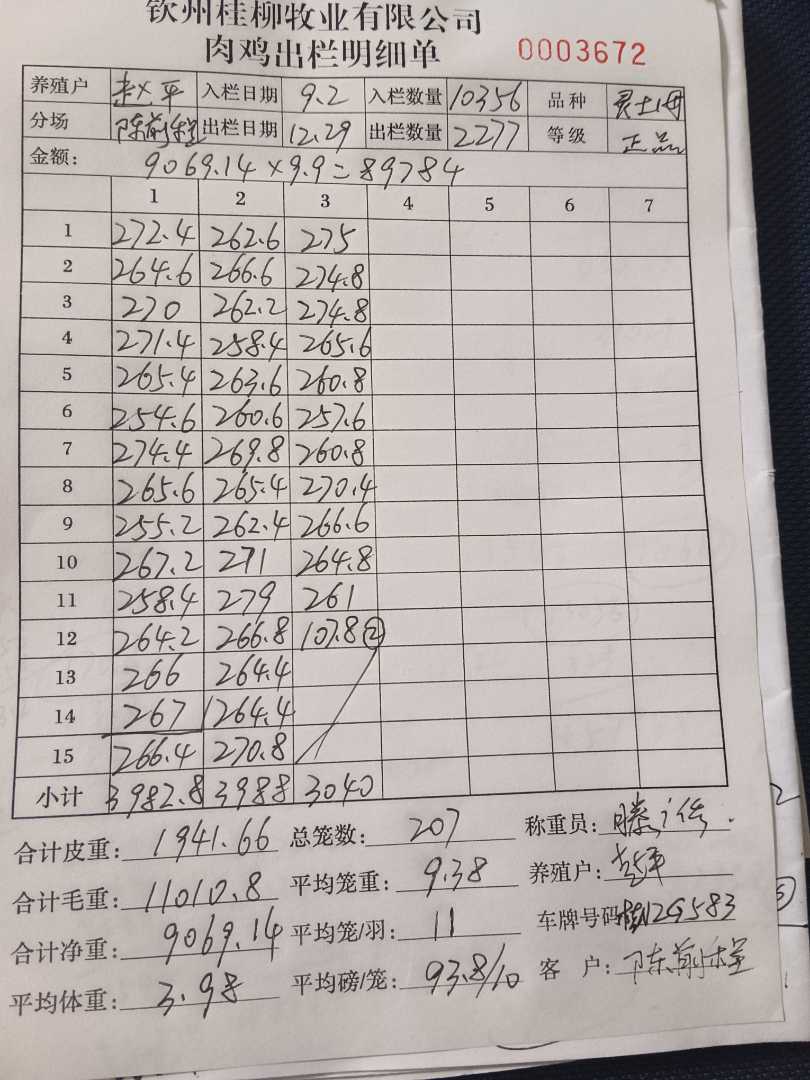 钦州桂柳牧业有限公司
肉鸡出栏明细单 0003672
养殖户 赵平 入栏日期 9.2 入栏数量 10356 品种 灵土1号
分场 陈前程 出栏日期 12.29 出栏数量 2277 等级 正品
金额: 9069.14×9.9=89784
1 2 3 4 5 6 7
1 272.4 262.6 275
2 264.6 266.6 274.8
3 270 262.2 274.8
4 271.4 258.4 265.6
5 265.4 263.6 260.8
6 254.6 260.6 257.6
7 274.4 269.8 260.8
8 265.6 265.4 270.4
9 255.2 262.4 266.6
10 267.2 271 264.8
11 258.4 279 261
12 264.2 266.8 107.8 ②
13 266 264.4
14 267 264.4
15 266.4 270.8
小计 3982.8 3988 3040
合计皮重: 1941.66 总笼数: 207 称重员:
合计毛重: 11010.8 平均笼重: 9.38 养殖户:
合计净重: 9069.14 平均笼/羽: 11 车牌号码 桂N2G583
平均体重: 3.98 平均磅/笼: 93.8/10 客户: 陈前程